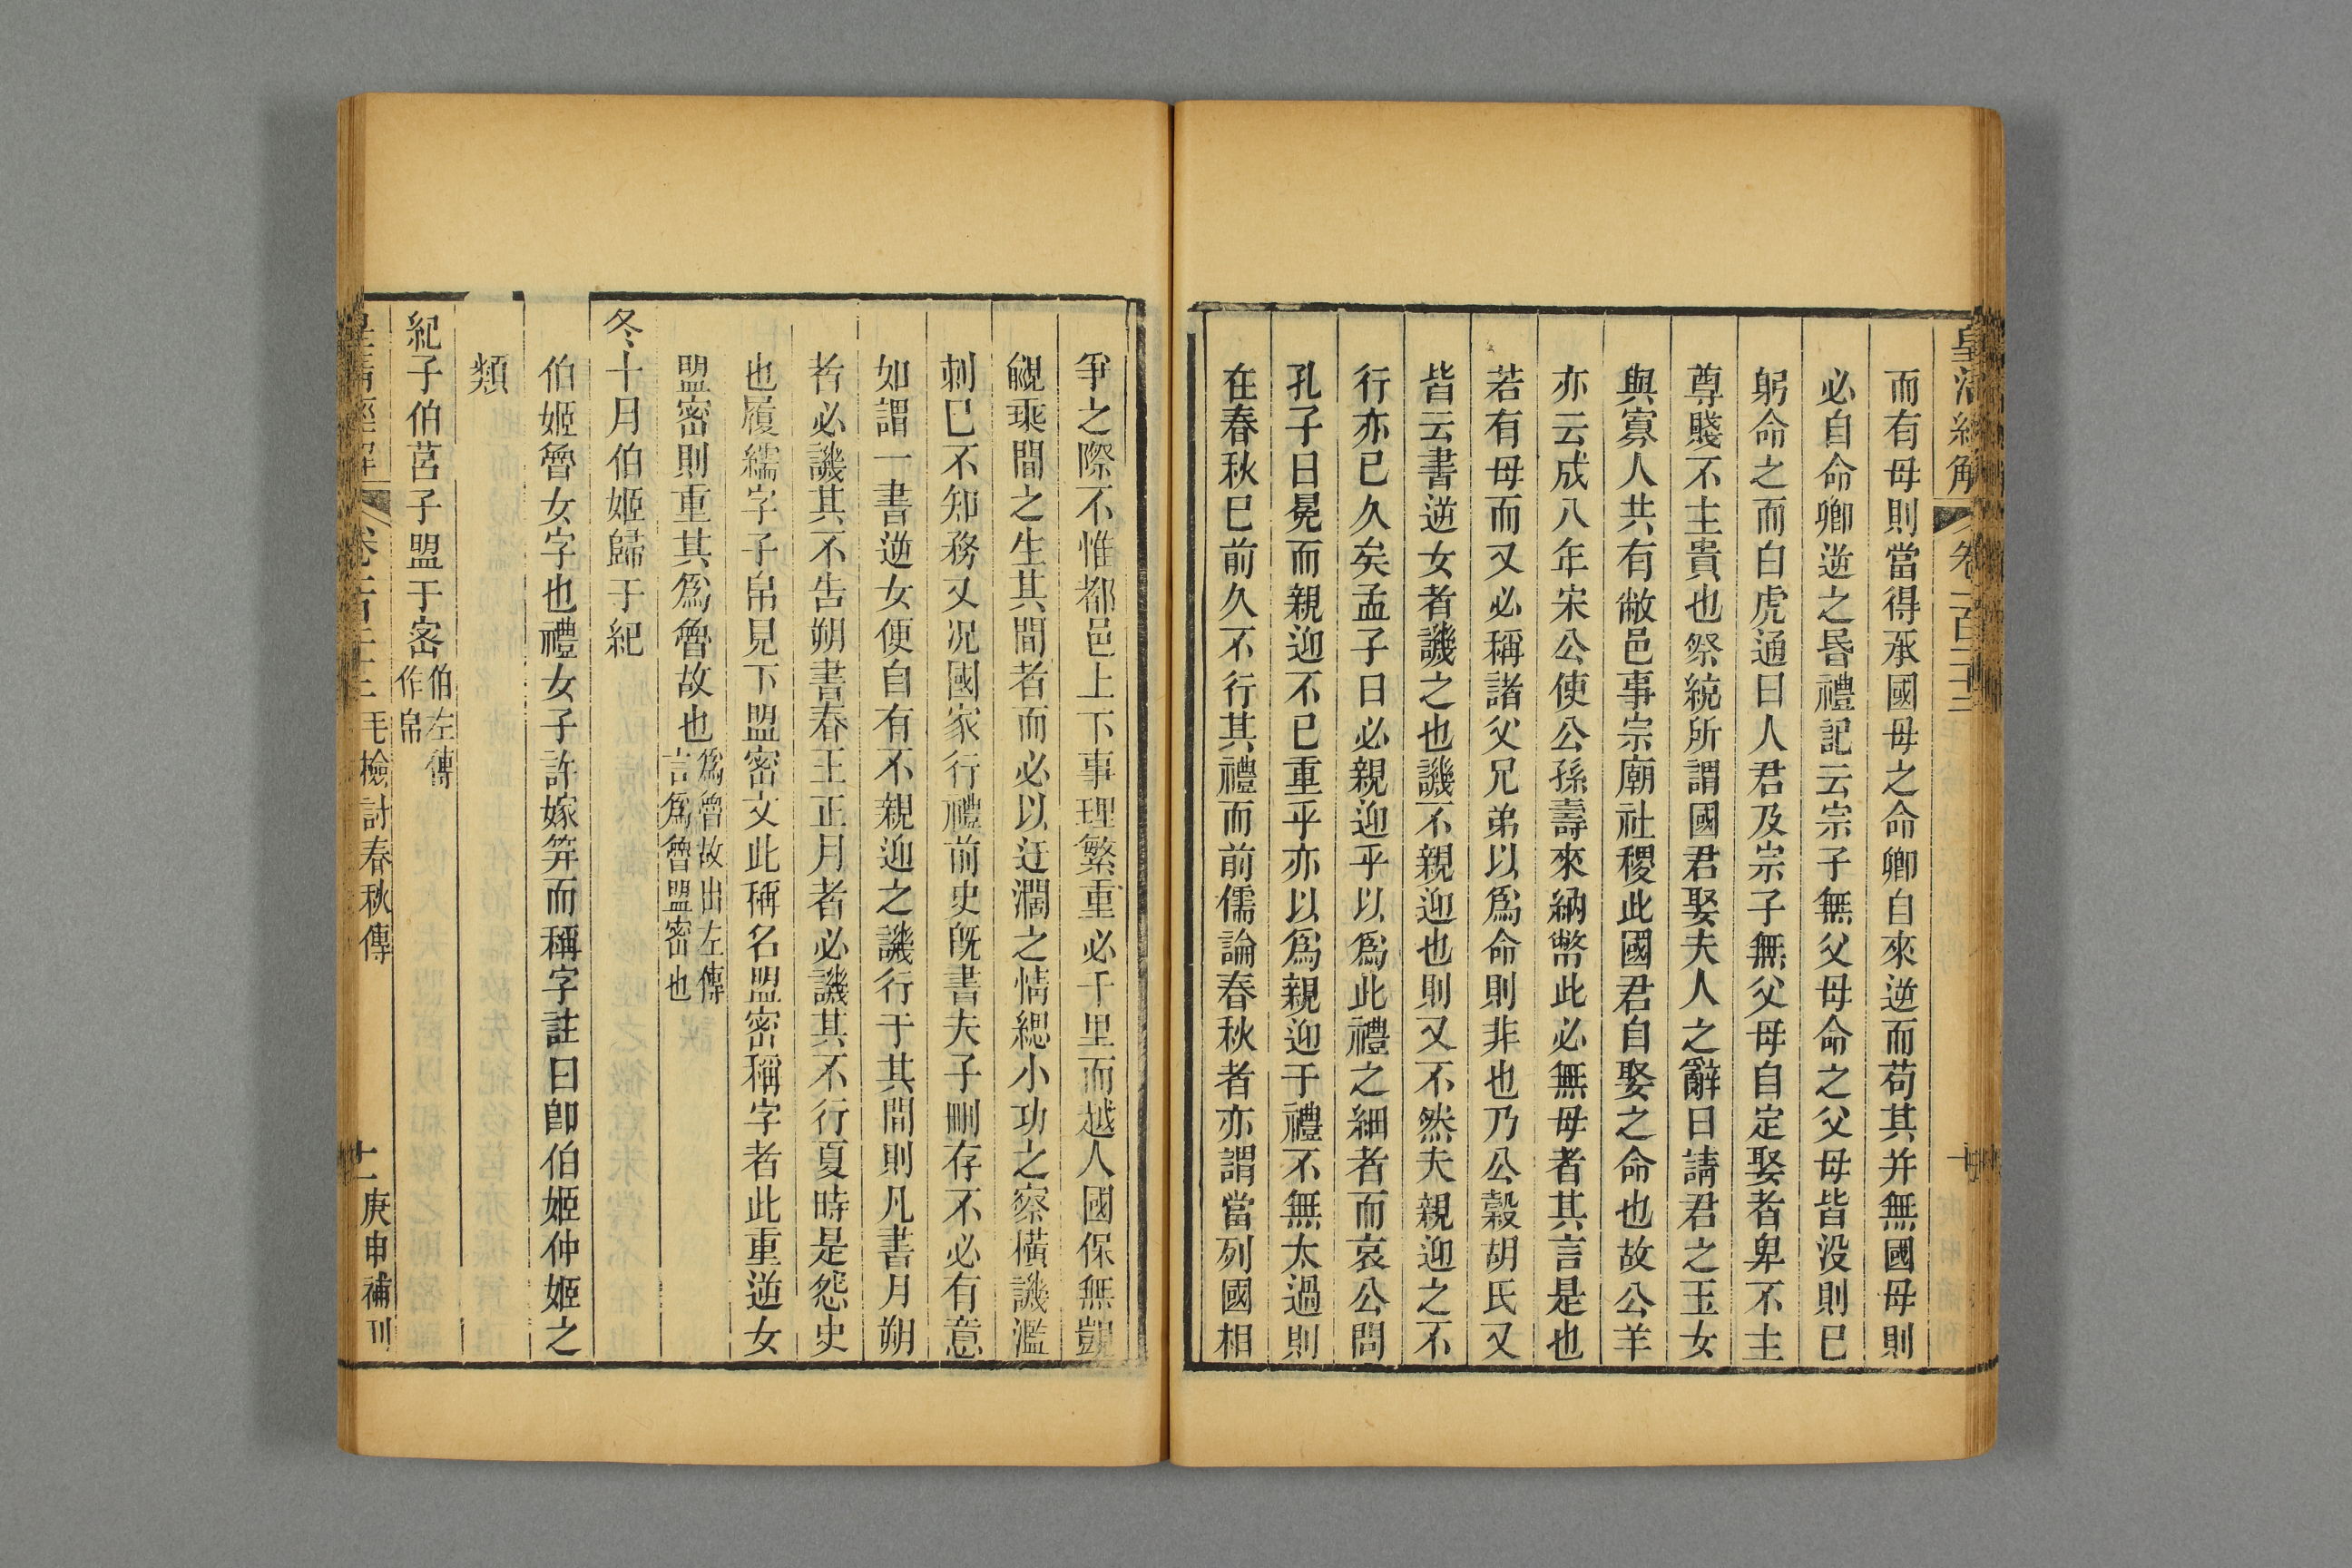 皇清經解 卷一百二十三 十
而有母則當得承國母之命卿自來逆而苟其并無國母則
必自命卿逆之昏禮記云宗子無父母命之父母皆没則已
躬命之而白虎通曰人君及宗子無父母自定娶者卑不主
尊賤不主貴也祭統所謂國君娶夫人之辭曰請君之玉女
與寡人共有敝邑事宗廟社稷此國君自娶之命也故公羊
亦云成八年宋公使公孫壽來納幣此必無母者其言是也
若有母而又必稱諸父兄弟以爲命則非也乃公穀胡氏又
皆云書逆女者譏之也譏不親迎也則又不然夫親迎之不
行亦已久矣孟子曰必親迎乎以爲此禮之細者而哀公問
孔子曰冕而親迎不已重乎亦以爲親迎于禮不無太過則
在春秋已前久不行其禮而前儒論春秋者亦謂當列國相
爭之際不惟都邑上下事理繁重必千里而越人國保無覬
覦乘間之生其間者而必以迂濶之情緦小功之察橫譏濫
刺已不知務又况國家行禮前史既書夫子刪存不必有意
如謂一書逆女便自有不親迎之譏行于其間則凡書月朔
者必譏其不告朔書春王正月者必譏其不行夏時是怨史
也履繻字子帛見下盟密文此稱名盟密稱字者此重逆女
盟密則重其爲魯故也爲魯故出左傳言爲魯盟密也
冬十月伯姬歸于紀
伯姬魯女字也禮女子許嫁筓而稱字註曰卽伯姬仲姬之
類
紀子伯莒子盟于密伯左傳作帛
皇清經解 卷一百二十三 毛檢討春秋傳 十一 庚申補刊